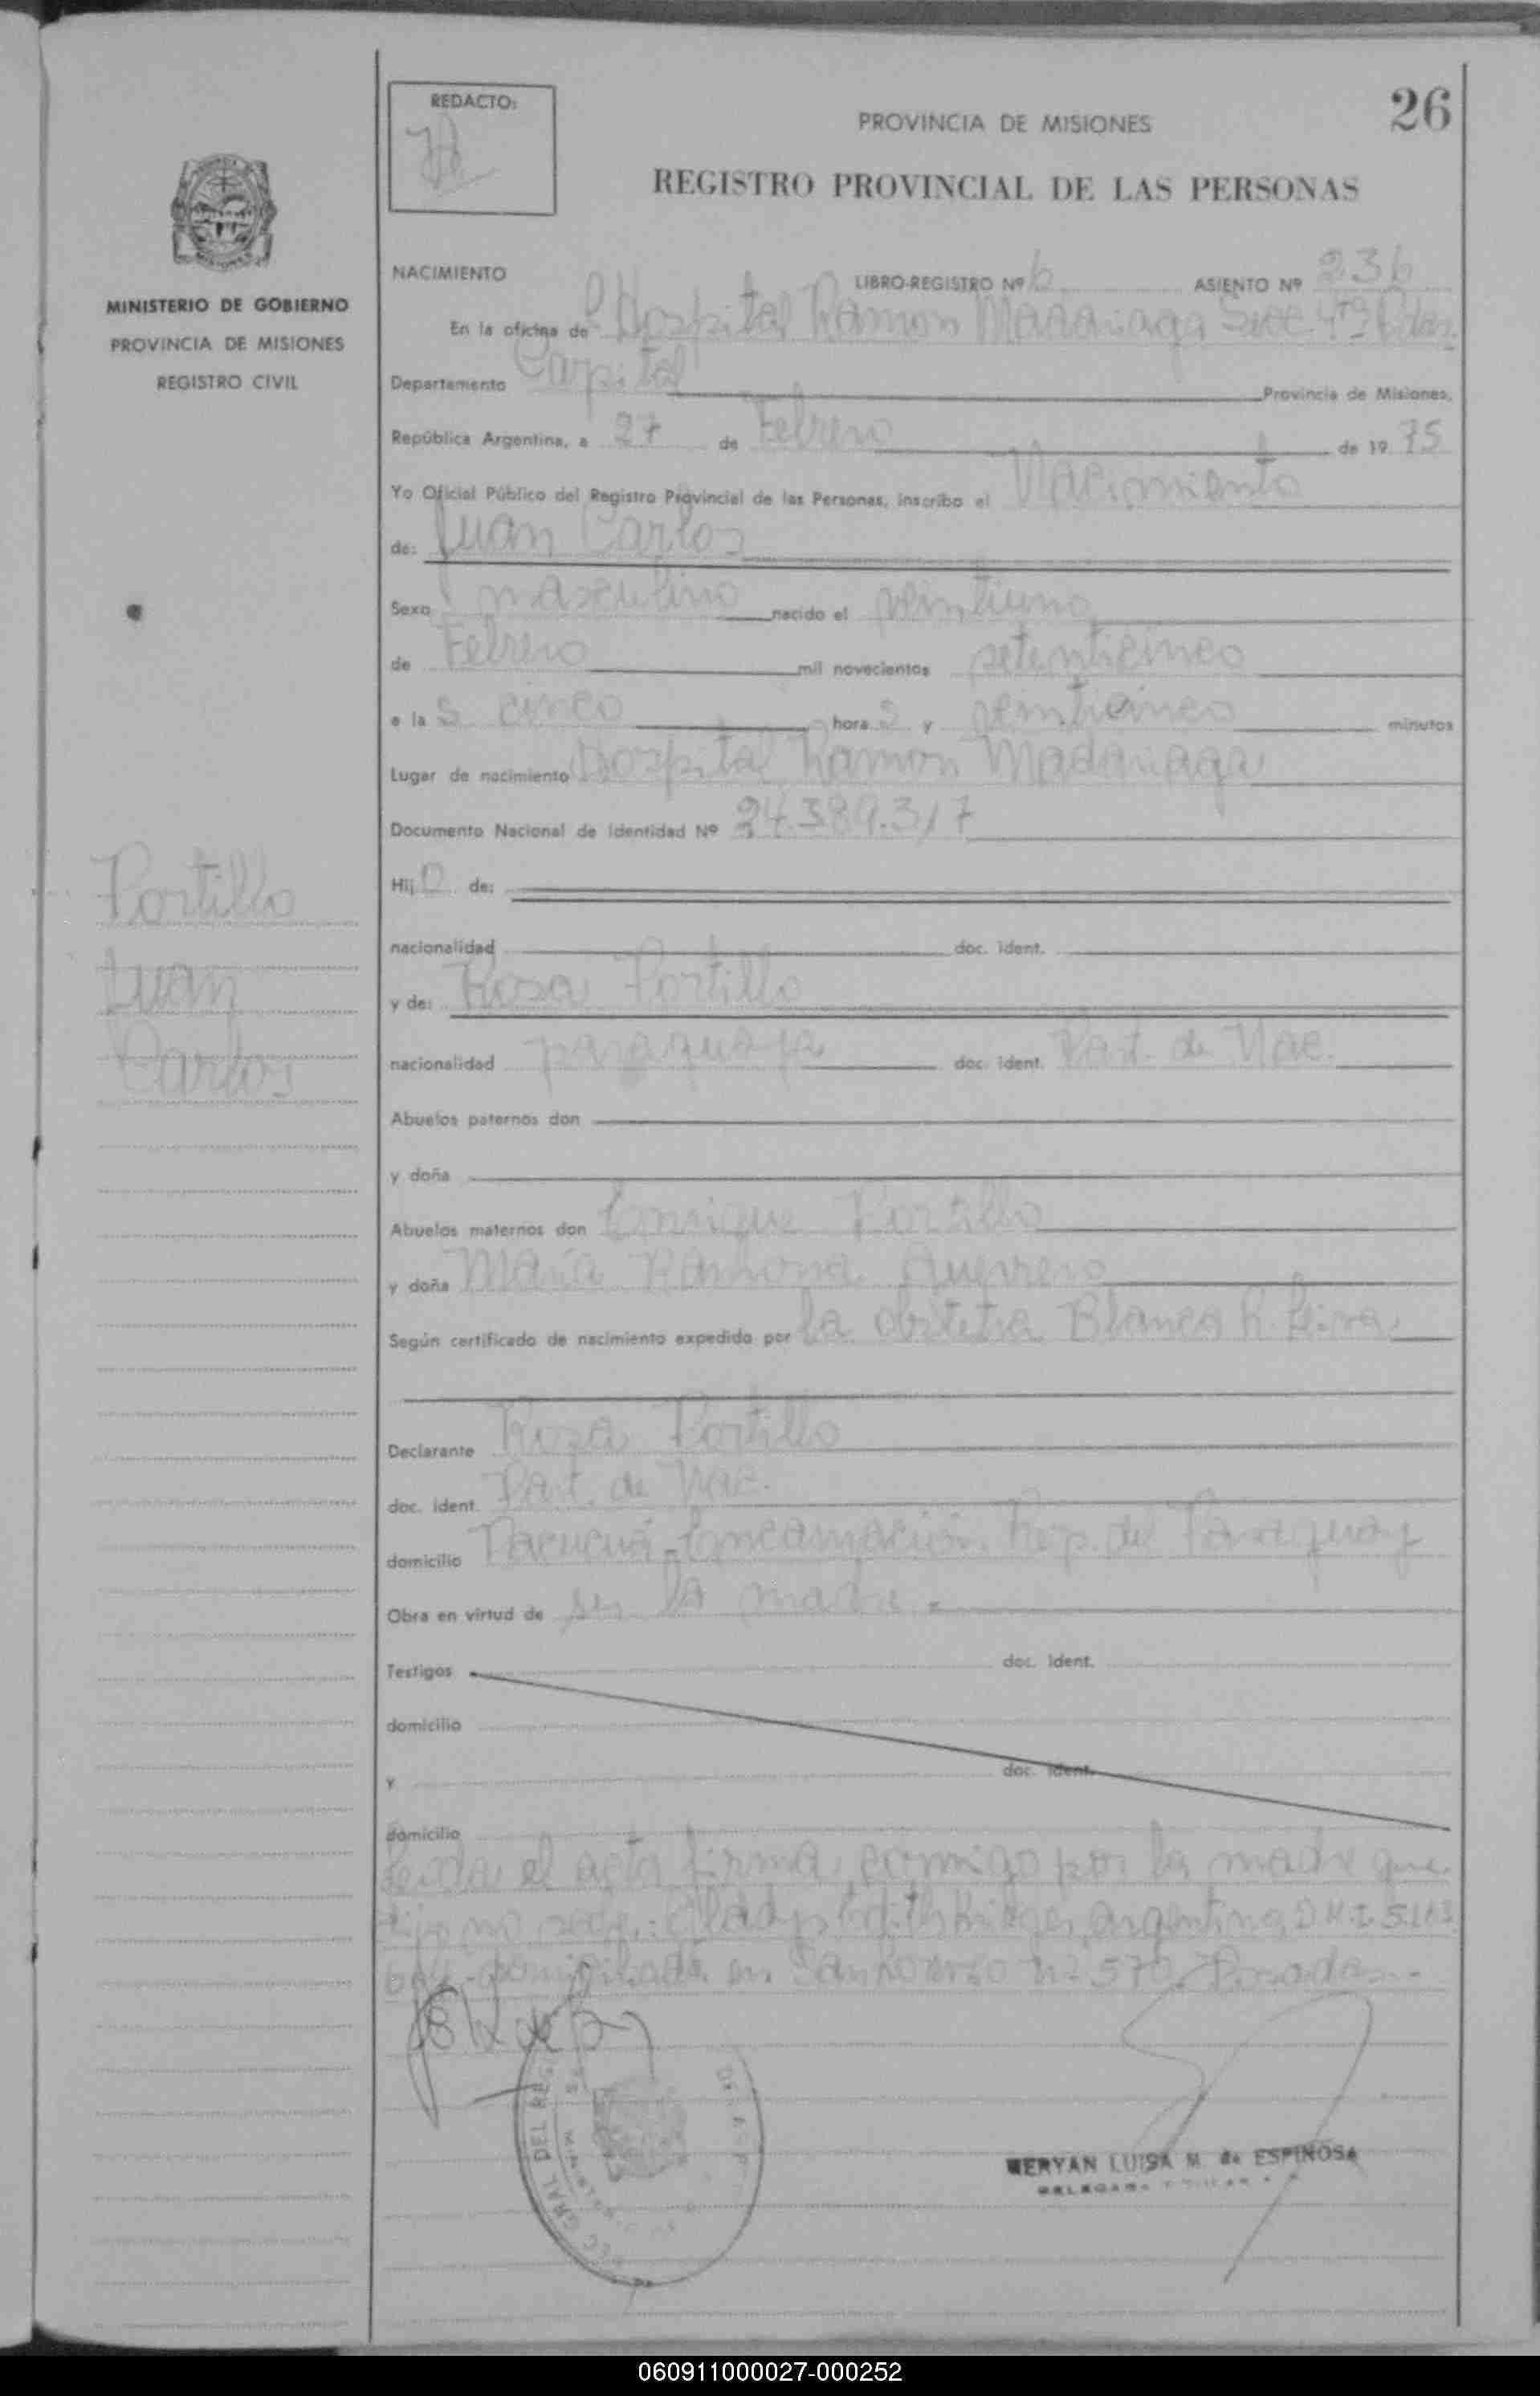 REDACTO:
26
PROVINCIA DE MISIONES
REGISTRO PROVINCIAL DE LAS PERSONAS
MINISTERIO DE GOBIERNO
PROVINCIA DE MISIONES
REGISTRO CIVIL
NACIMIENTO LIBRO-REGISTRO Nº 6 ASIENTO Nº 236
En la oficina de Hospital Ramon Madariaga
Departamento Capital Provincia de Misiones,
República Argentina, a 27 de Febrero de 19 75
Yo Oficial Público del Registro Provincial de las Personas, inscribo el Nacimiento
de: Juan Carlos
Sexo masculino nacido el veintiuno
de Febrero mil novecientos setenticinco
a la s cinco hora s y veinticinco minutos
Lugar de nacimiento Hospital Ramon Madariaga
Documento Nacional de Identidad Nº 24.389.317
Hij o de:
Portillo
Juan
Carlos
nacionalidad doc. ident.
y de: Rosa Portillo
nacionalidad paraguaya doc. ident. Part. de Nac.
Abuelos paternos don
y doña
Abuelos maternos don Enrique Portillo
y doña Maria Ramona Guerrero
Según certificado de nacimiento expedido por la obstetra Blanca R.
Declarante Rosa Portillo
doc. ident. Part. de Nac.
domicilio Encarnación. Rep. del Paraguay
Obra en virtud de ser la madre.
Testigos doc. ident.
domicilio
y doc. ident.
domicilio
Leida el acta firma conmigo por la madre que
dijo no saber: Gladys Edith argentina D.N.I. 5.
domiciliada en San Lorenzo Nº 570. Posadas.-
GRAL DEL REG
MERYAN LUISA M. de ESPINOSA
060911000027-000252